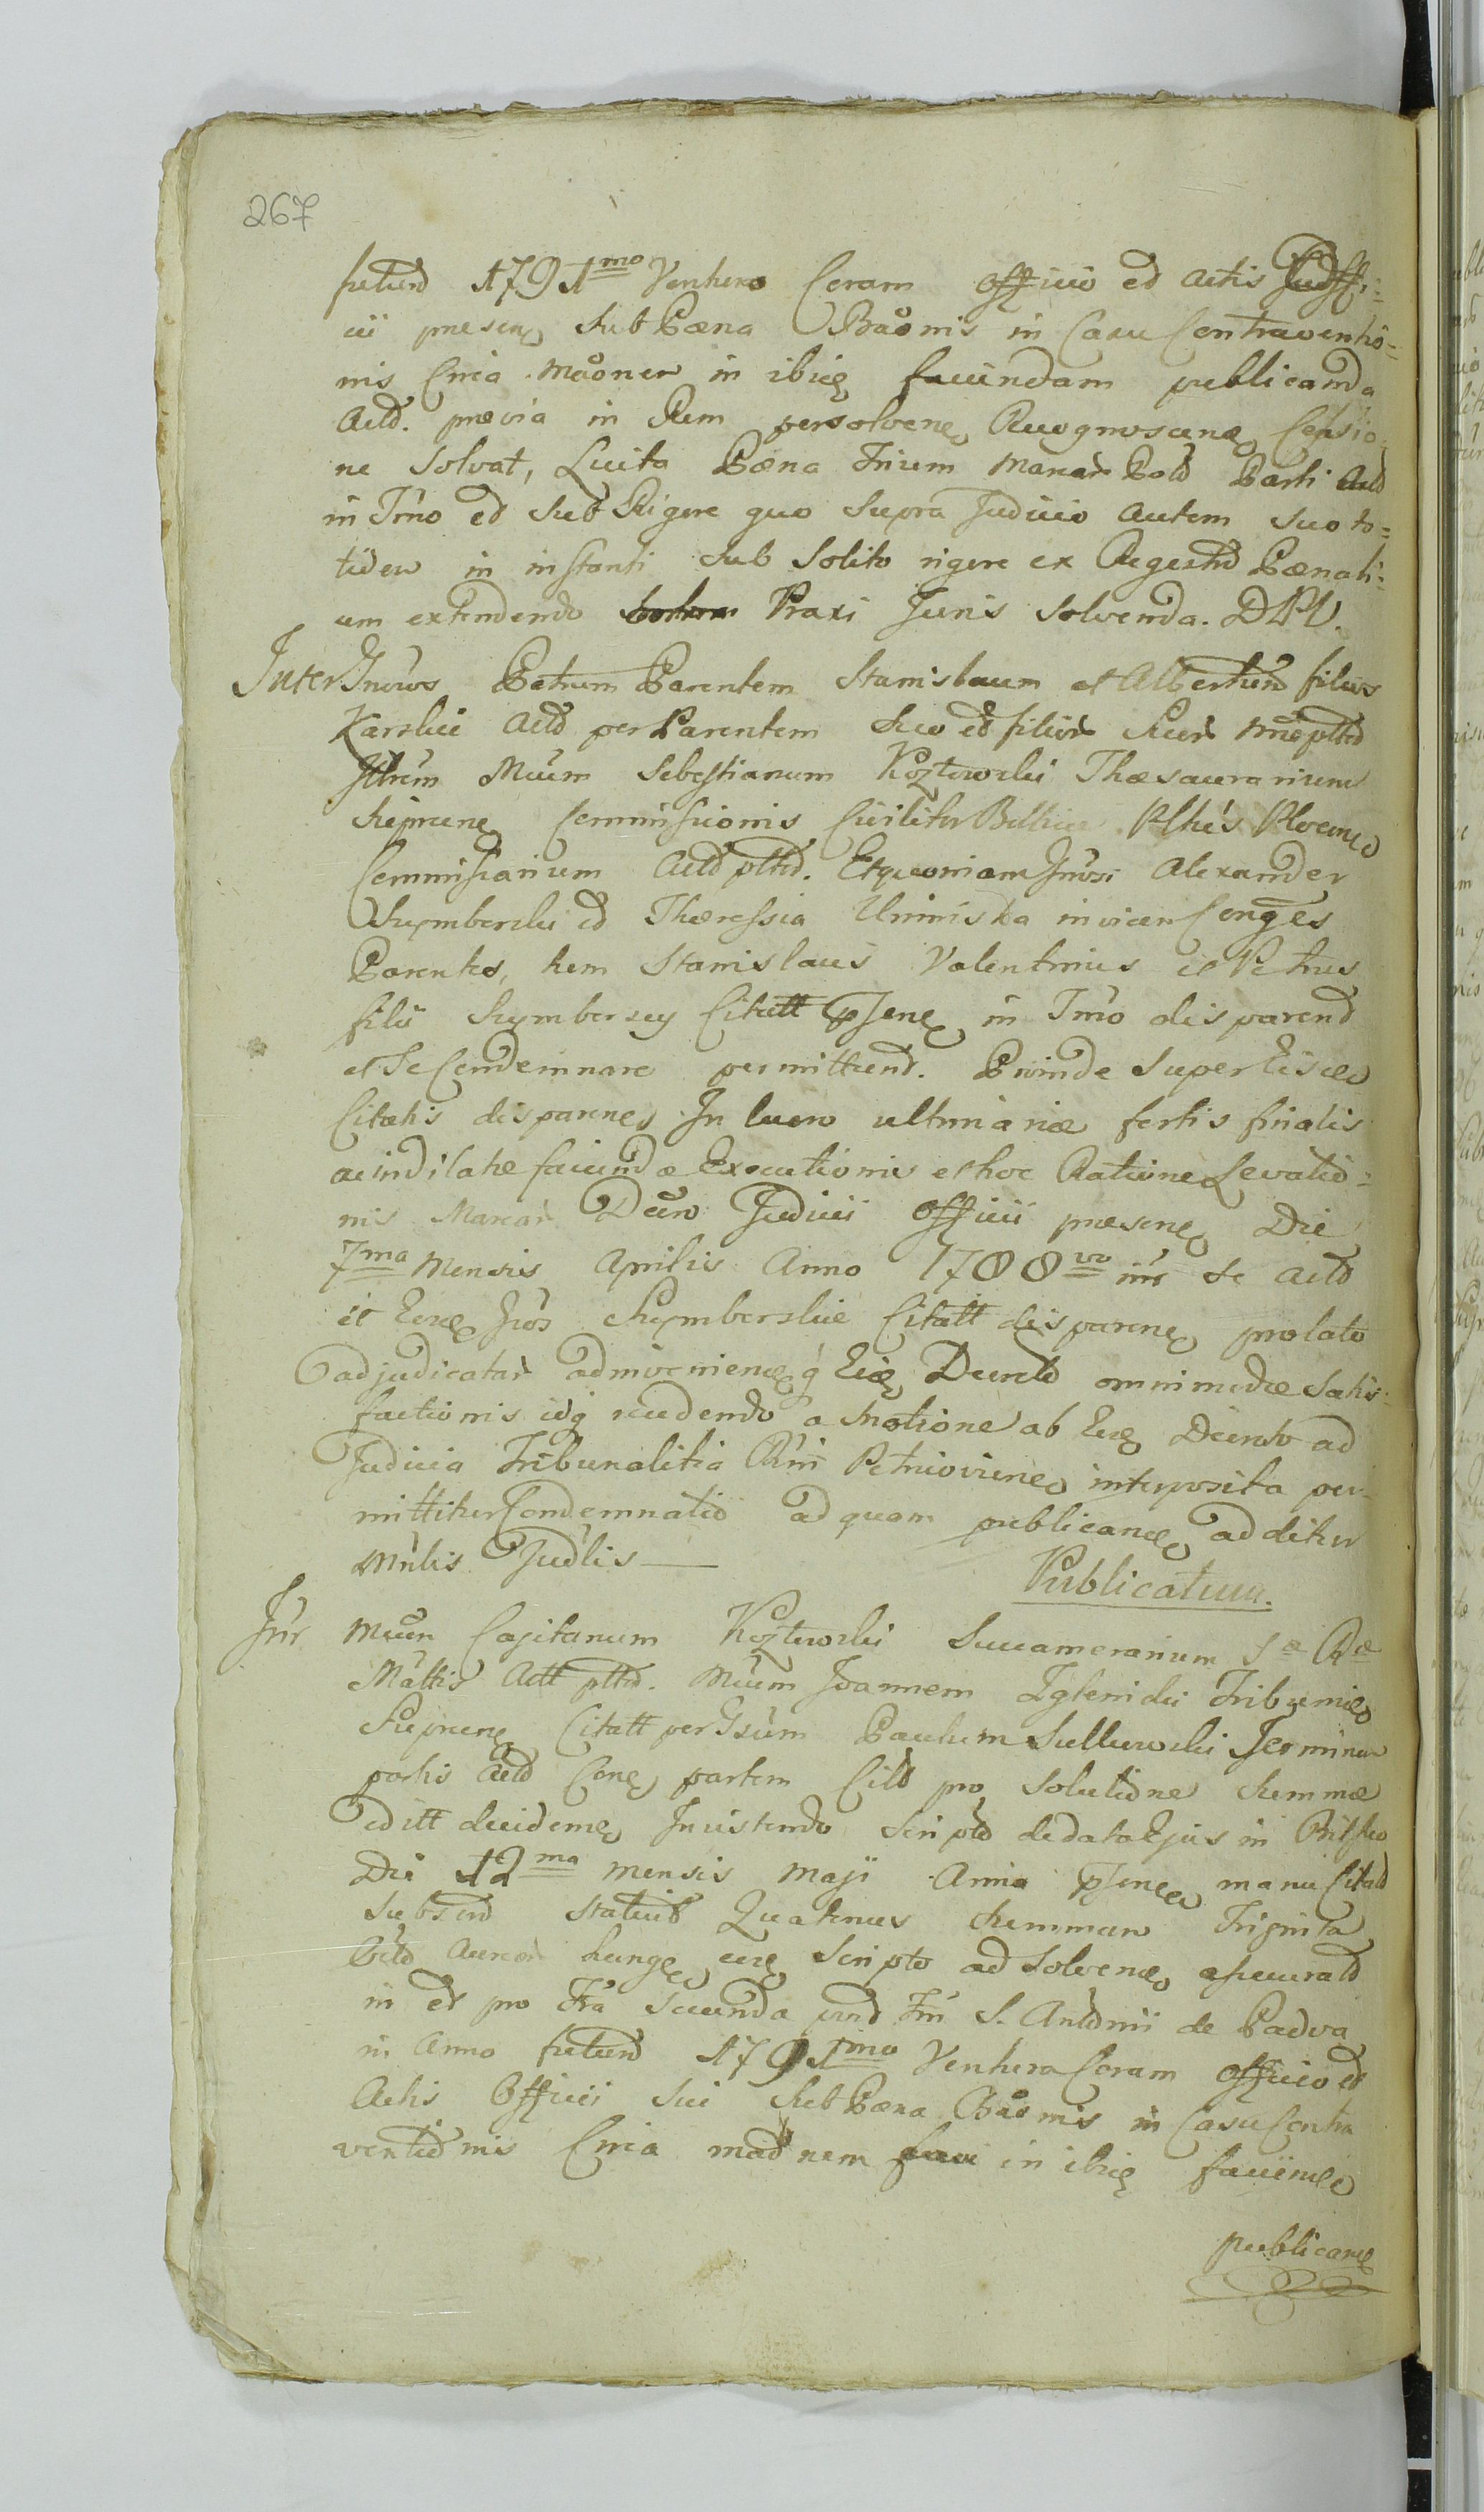 267
futurũ 1791mo Ventura Coram Officio ed Actis Judffi=
cii presenę Sub Pæna Baonis in Casu Contraventio=
nis Circa Maonem in ibiq faciendam publicanda
Actd. prævia in Rem persolvenę Recognoscenę Cessio
ne Solvat, Luita Pæna Trium Marcar Pold Parti Actd
in Tmo ed Sub Rigore quo Supra Judicio autem Suo to=
tidem in instanti Sub Solito rigore ex Regestro Pænali=
um extendendo Praxi Juris Solvenda. DPV.
Inter Gnosos Petrum Parentem Stanislaum et Albertum filios
Karskie Actd per Parentem Suo et filior Suor nne pltd
Jttrum Mcum Sebestianum Kozłowski Thæsaurarium
Sieprcenę Commissionis Civiliter Bellicæ Pltus Plocenę
Commissarium Actd pltd. Et quoniam Gnosi Alexander
Szymberski ed Theressia Uninska invicem Conges
Parentes, tum Stanislaus Valentinus et Petrus
filii Szymberscy Citatt pSenę in Tmo disparend
et Se Condemnare permittend. Proinde Super Eisdem
Citatis disparenę In lucro ultimariæ fortis finalis
ac indilatæ faciendæ Executionis et hoc Ratione Levatio=
nis Marcar Dcum Judicii Officii præsenę Die
7ma Mensis Aprilis Anno 1788vo inr se Actd
et Eosę Gnos Szymberskie Citatt disparenę prolato
adjudicatar admivenienę q Eię Decreto omnimodæ Satis=
factionis idq cudendo a Motione ab Eoę Decreto ad
Judicia Tribunalitia Rni Petricoviene interposita per=
mittitur Condemnatio ad quam publicanę additur
Mnlis Judlis —
Publicatum.
Inr Mcum Cajitanum Kozłowski Succamerarium Sæ Ræ
Mattis Actt pltd. Mcum Joannem Zglenicki Tribunię
Sieprcenę Citatt per Gsum Paulum Sullkowski Terminum
partis Actd Conę partem Citd pro Solutione Summæ
editt decidenę Insistendo Scripto de data Ejus in Bitsko
Die 12ma Mensis Maji Anni pSenę manu Citatd
Subscrd Statuit Quatenus Summam Triginta
Octo Aureor hungę eoę Scripto ad Solvenę assecuratd
in et pro Fra Secunda post Fm S. Antonii de Padva
in Anno futurũ 1791mo Ventura Coram Officio et
Actis Officii Sui Sub Pæna Baonis in Casu Contra
ventionis Circa maonem in ibię facienę
publicanę